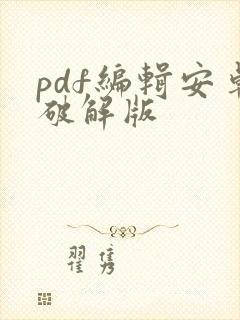 pdf编辑安卓
破解版
翟隽